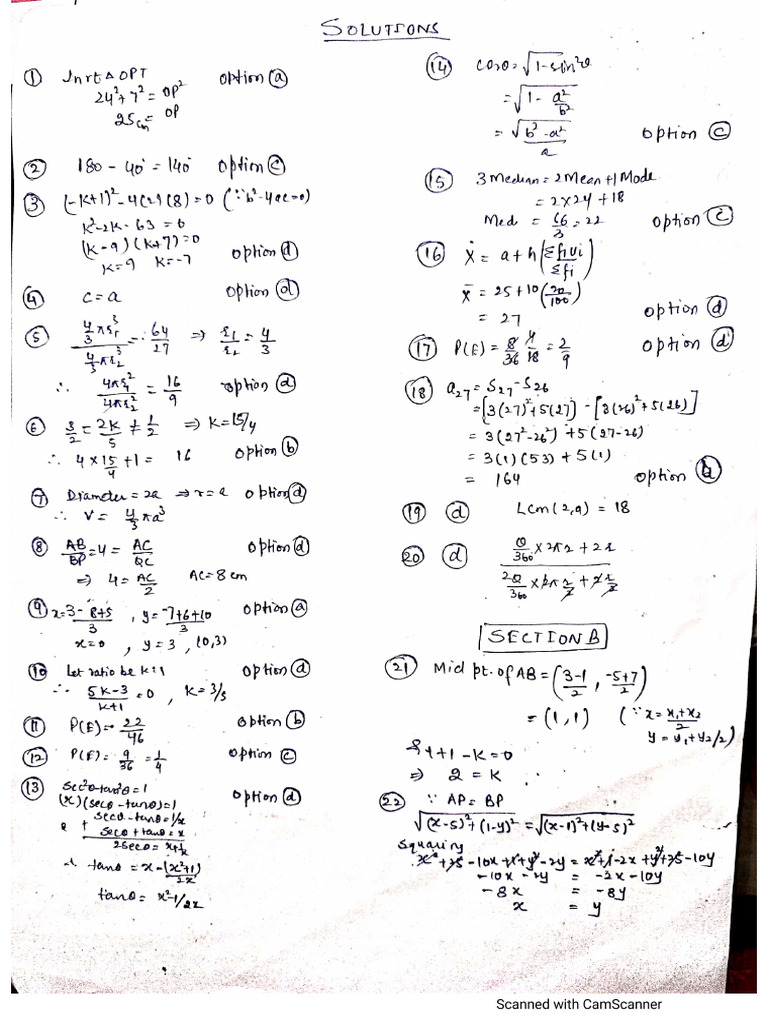 SOLUTIONS
① In rt △ OPT Option ⓐ
24² + 7² = OP²
25cm = OP
② 180 - 40° = 140° Option ⓒ
③ (-k+1)² - 4(2)(8) = 0 (∵ b² - 4ac = 0)
k² - 2k - 63 = 0
(k - 9)(k + 7) = 0
k = 9 k = -7 Option ⓓ
④ c = a Option ⓓ
⑤ 4/3 πr₁³ / 4/3 πr₂³ = 64/27 ⇒ r₁/r₂ = 4/3
∴ 4πr₁²/4πr₂² = 16/9 Option ⓓ
⑥ 3/2 = 2k/5 ≠ 1/2 ⇒ k = 15/4
∴ 4 × 15/4 + 1 = 16 Option ⓑ
⑦ Diameter = 2a ⇒ r = a Option ⓓ
∴ V = 4/3 πa³
⑧ AB/BP = 4 = AC/QC Option ⓓ
⇒ 4 = AC/2 AC = 8 cm
⑨ x = 3 - 8 + 5/3 , y = -7+6+10/3 Option ⓐ
x = 0 , y = 3 , (0,3)
⑩ Let ratio be k:1 Option ⓓ
∴ 5k-3/k+1 = 0 , k = 3/5
⑪ P(E) = 22/46 Option ⓑ
⑫ P(E) = 9/36 = 1/4 Option ⓒ
⑬ sec²θ - tan²θ = 1
(x)(secθ - tanθ) = 1 Option ⓓ
secθ - tanθ = 1/x
+ secθ + tanθ = x
2secθ = x + 1/x
∴ tanθ = x - (x²+1)/2x
tanθ = x² - 1/2x
⑭ cosθ = √1 - sin²θ
= √1 - a²/b²
= √b² - a²/a Option ⓒ
⑮ 3 Median = 2 Mean + 1 Mode
= 2 × 24 + 18
Med = 66/3 = 22 Option ⓒ
⑯ x̄ = a + h (Σfiui/Σfi)
x̄ = 25 + 10 (20/100)
= 27 Option ⓓ
⑰ P(E) = 8/36 4/18 = 2/9 Option ⓓ
⑱ a₂₇ = S₂₇ - S₂₆
= [3(27)² + 5(27)] - [3(26)² + 5(26)]
= 3(27² - 26²) + 5(27 - 26)
= 3(1)(53) + 5(1)
= 164 Option ⓑ
⑲ ⓓ Lcm (2,9) = 18
⑳ ⓓ θ/360 × 2πr + 2r
2θ/360 × 2π r/2 + 2 r/2
SECTION B
㉑ Mid pt. of AB = (3-1/2 , -5+7/2)
= (1, 1) (∵ x = x₁+x₂/2
y = y₁+y₂/2)
1 + 1 - k = 0
⇒ 2 = k
㉒ ∵ AP = BP
√(x-5)² + (1-y)² = √(x-1)² + (y-5)²
Squaring
x² + 25 - 10x + 1 + y² - 2y = x² + 1 - 2x + y² + 25 - 10y
-10x - 2y = -2x - 10y
-8x = -8y
x = y
Scanned with CamScanner